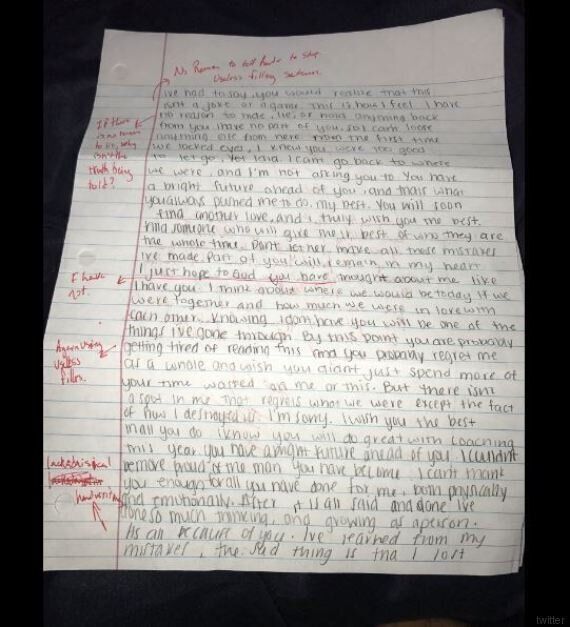 No Reason to tell Reader to stop
Useless filling sentence.
I've had to say, you would realize that this
isn't a joke, or a game. This is how I feel. I have
no reason to hide, lie, or hold anything back
from you. I have no part of you, so I can't loose
anything else from here. From the first time
we locked eyes, I knew you were too good
to let go. Yet I did. I cant go back to where
we were, and I'm not asking you to. You have
a bright future ahead of you, and thats what
you always pushed me to do, my best. You will soon
find another love, and I truly wish you the best.
Find someone who will give the best of who they are
the whole time. Don't let her make all those mistakes
I've made. Part of you will remain in my heart
I just hope to God you have thought about me like
I have you. I think about where we would be today if we
were together and how much we were in love with
each other. Knowing I dont have you will be one of the
things I've gone through. By this point you are probably
getting tired of reading this and you probably regret me
as a whole and wish you didnt just spend more of
your time wasted on me or this. But there isnt
a spot in me that regrets what we were except the fact
of how I destroyed us. I'm sorry. I wish you the best
in all you do. I know you will do great with coaching
this year. You have a bright future ahead of you. I couldn't
be more proud of the man you have become. I can't thank
you enough for all you have done for me, both physically
and emotionally. After it is all said and done Ive
done so much thinking, and growing as a person.
Its all because of you. I've learned from my
mistakes, the sad thing is tha I lost
If there
is no reason
to lie, why
isn't the
truth being
told?
I have
not.
Again using
useless
fillers.
handwriting
twitter